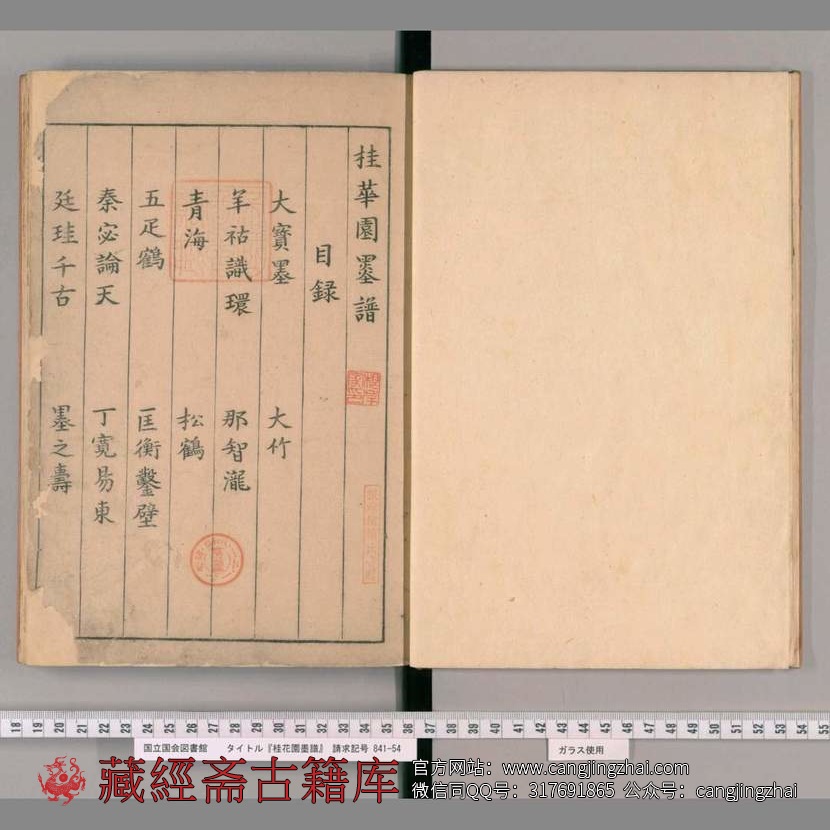 桂華園墨譜
目録
大寶墨 大竹
羊祜識環 那智瀧
青海 松鶴
五足鶴 匡衡鑿壁
秦宓論天 丁寛易東
廷珪千古 墨之壽
18 19 20 21 22 23 24 25 26 27 28 29 30 31 32 33 34 35 36 37 38 39 40 41 42 43 44 45 46 47 48 49 50 51 52 53 54 55
国立国会図書館 タイトル『桂花園墨譜』 請求記号 841-54
ガラス使用
藏經斋古籍库
官方网站：www.cangjingzhai.com
微信同QQ号：317691865 公众号：cangjingzhai